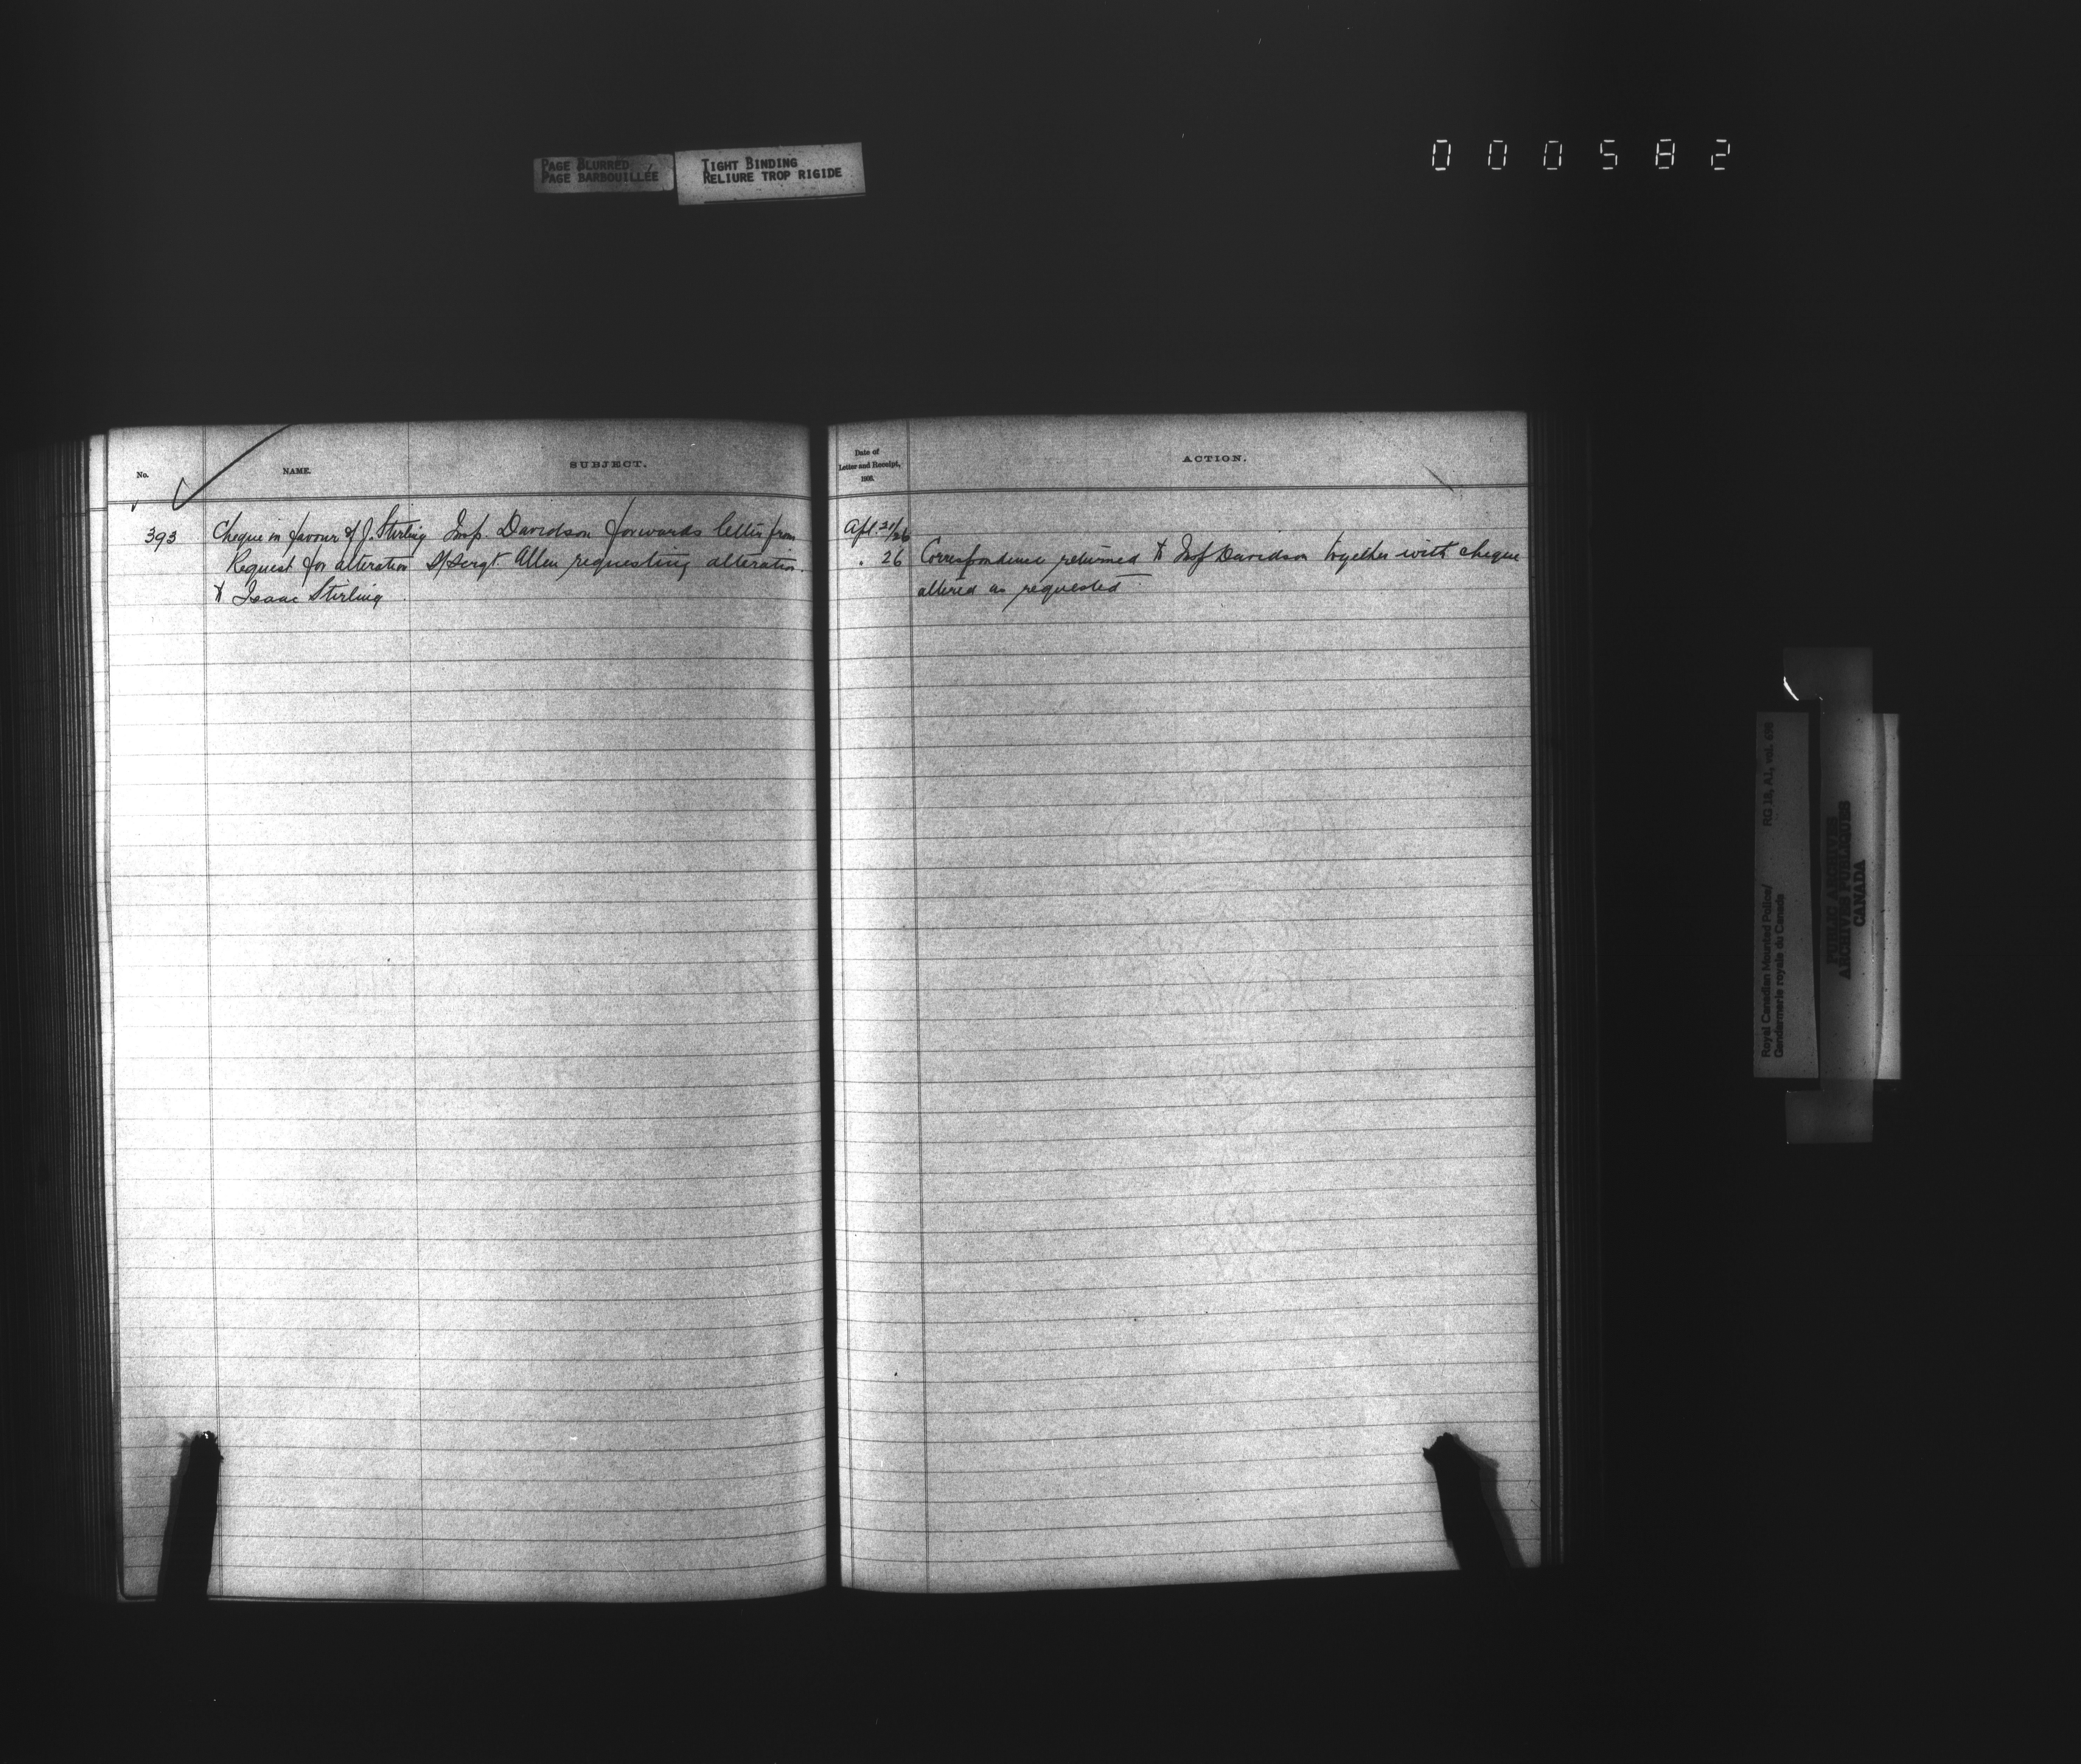 PAGE BLURRED
PAGE BARBOUILLÉE
TIGHT BINDING
RELIURE TROP RIGIDE
000582
No.
NAME.
SUBJECT.
Date of
Letter and Receipt,
ACTION.
393
Cheque in favour of J. Stirling
Request for alteration
to Isaac Stirling
Insp. Davidson forwards letter from
S/Sergt. Allen requesting alteration.
Apl. 21/26
" 26
Correspondence returned to Insp Davidson together with cheque
altered as requested
Royal Canadian Mounted Police/
Gendarmerie royale du Canada
RG 18, A1, vol.
PUBLIC ARCHIVES
ARCHIVES PUBLIQUES
CANADA